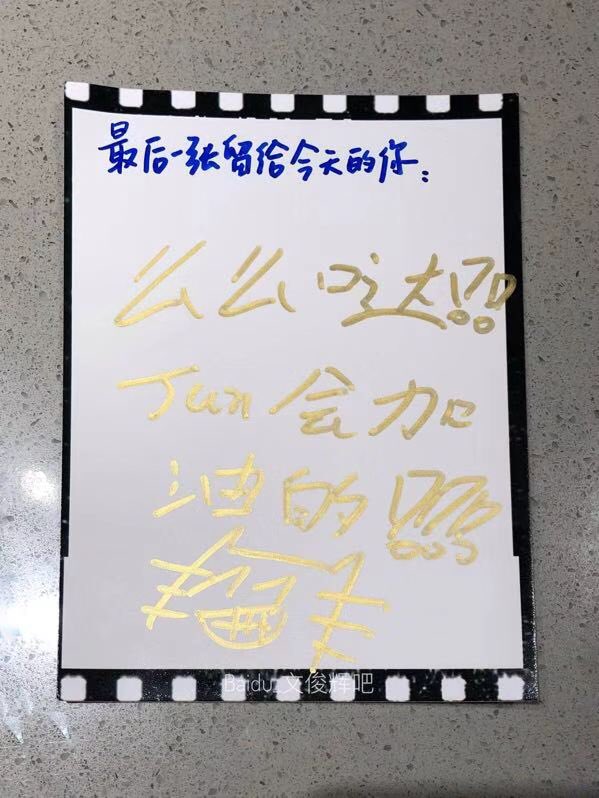 最后一张留给今天的你：
么么哒!!!
Jun会加
油的!!!
Baidu 文俊辉吧